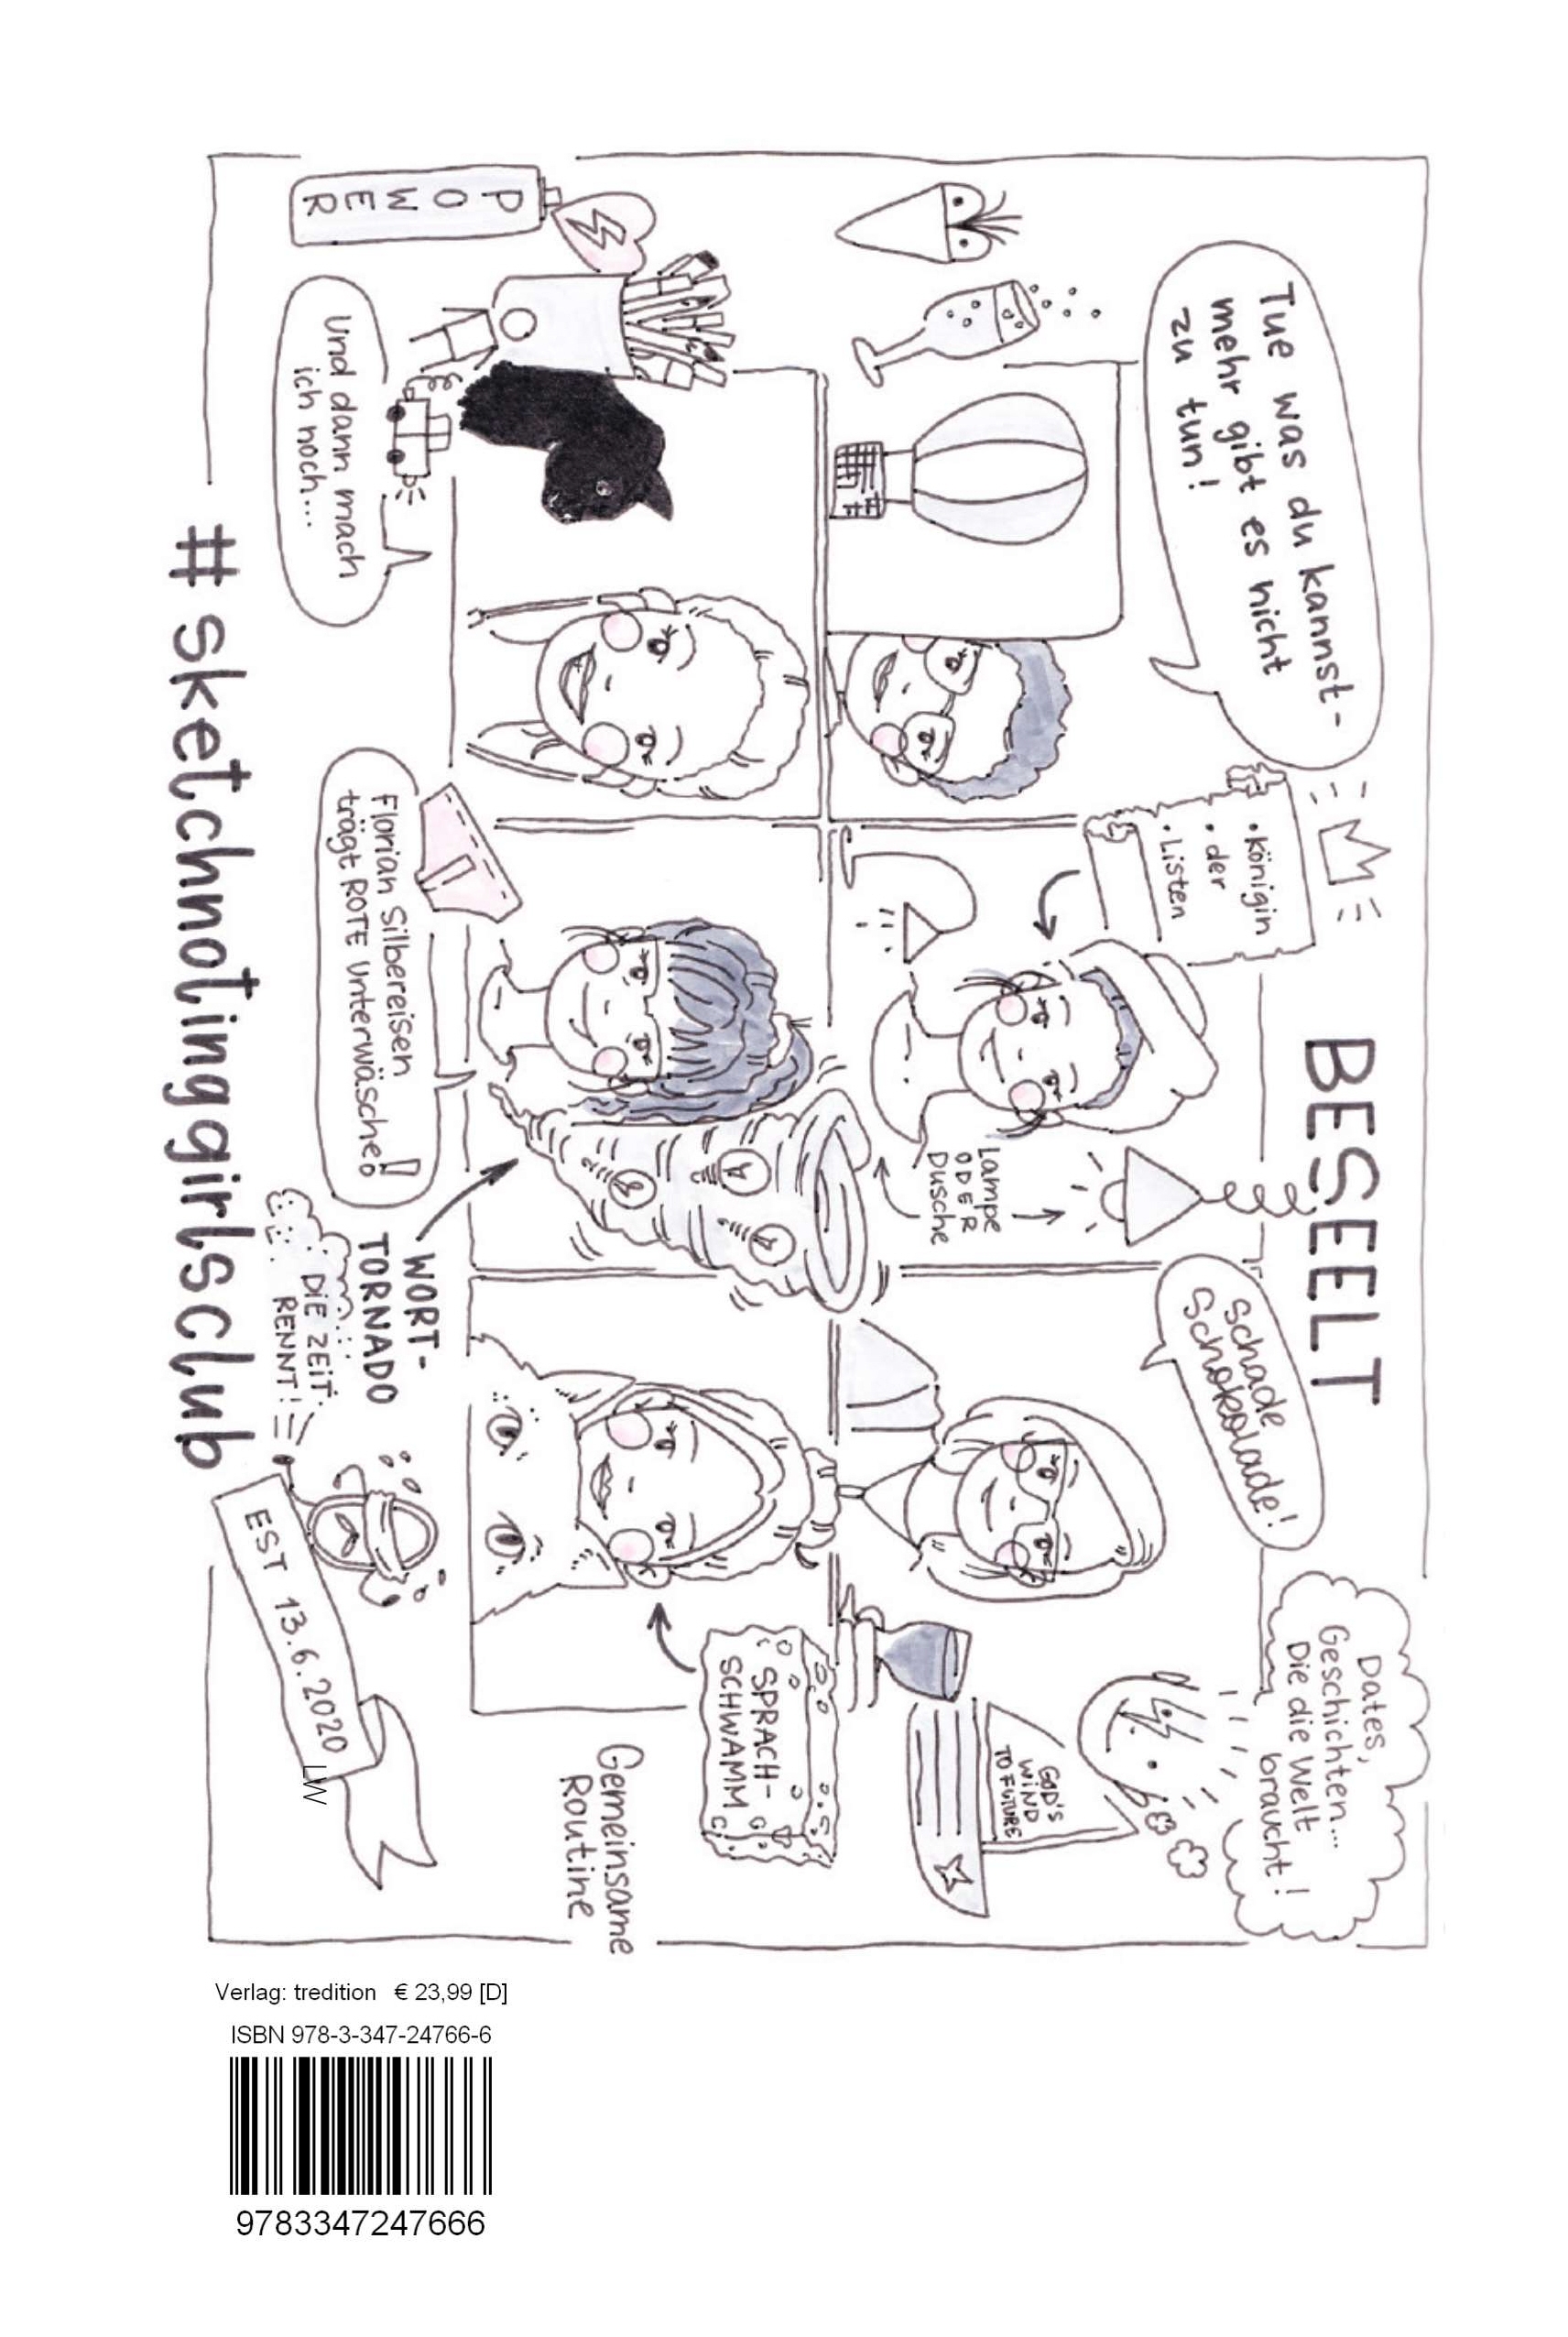 BESEELT
Tue was du kannst-
mehr gibt es nicht
zu tun!
• Königin
• der
• Listen
Schade
Schokolade!
Dates,
Geschichten...
Die die Welt
braucht!
Lampe
ODER
Dusche
GOD'S
WIND
TO FUTURE
SPRACH-
SCHWAMM
Gemeinsame
Routine
POWER
Und dann mach
ich noch...
Florian Silbereisen
trägt ROTE Unterwäsche!
WORT-
TORNADO
DIE ZEIT
RENNT!
EST 13.6.2020
LW
#sketchnotinggirlsclub
Verlag: tredition € 23,99 [D]
ISBN 978-3-347-24766-6
9783347247666